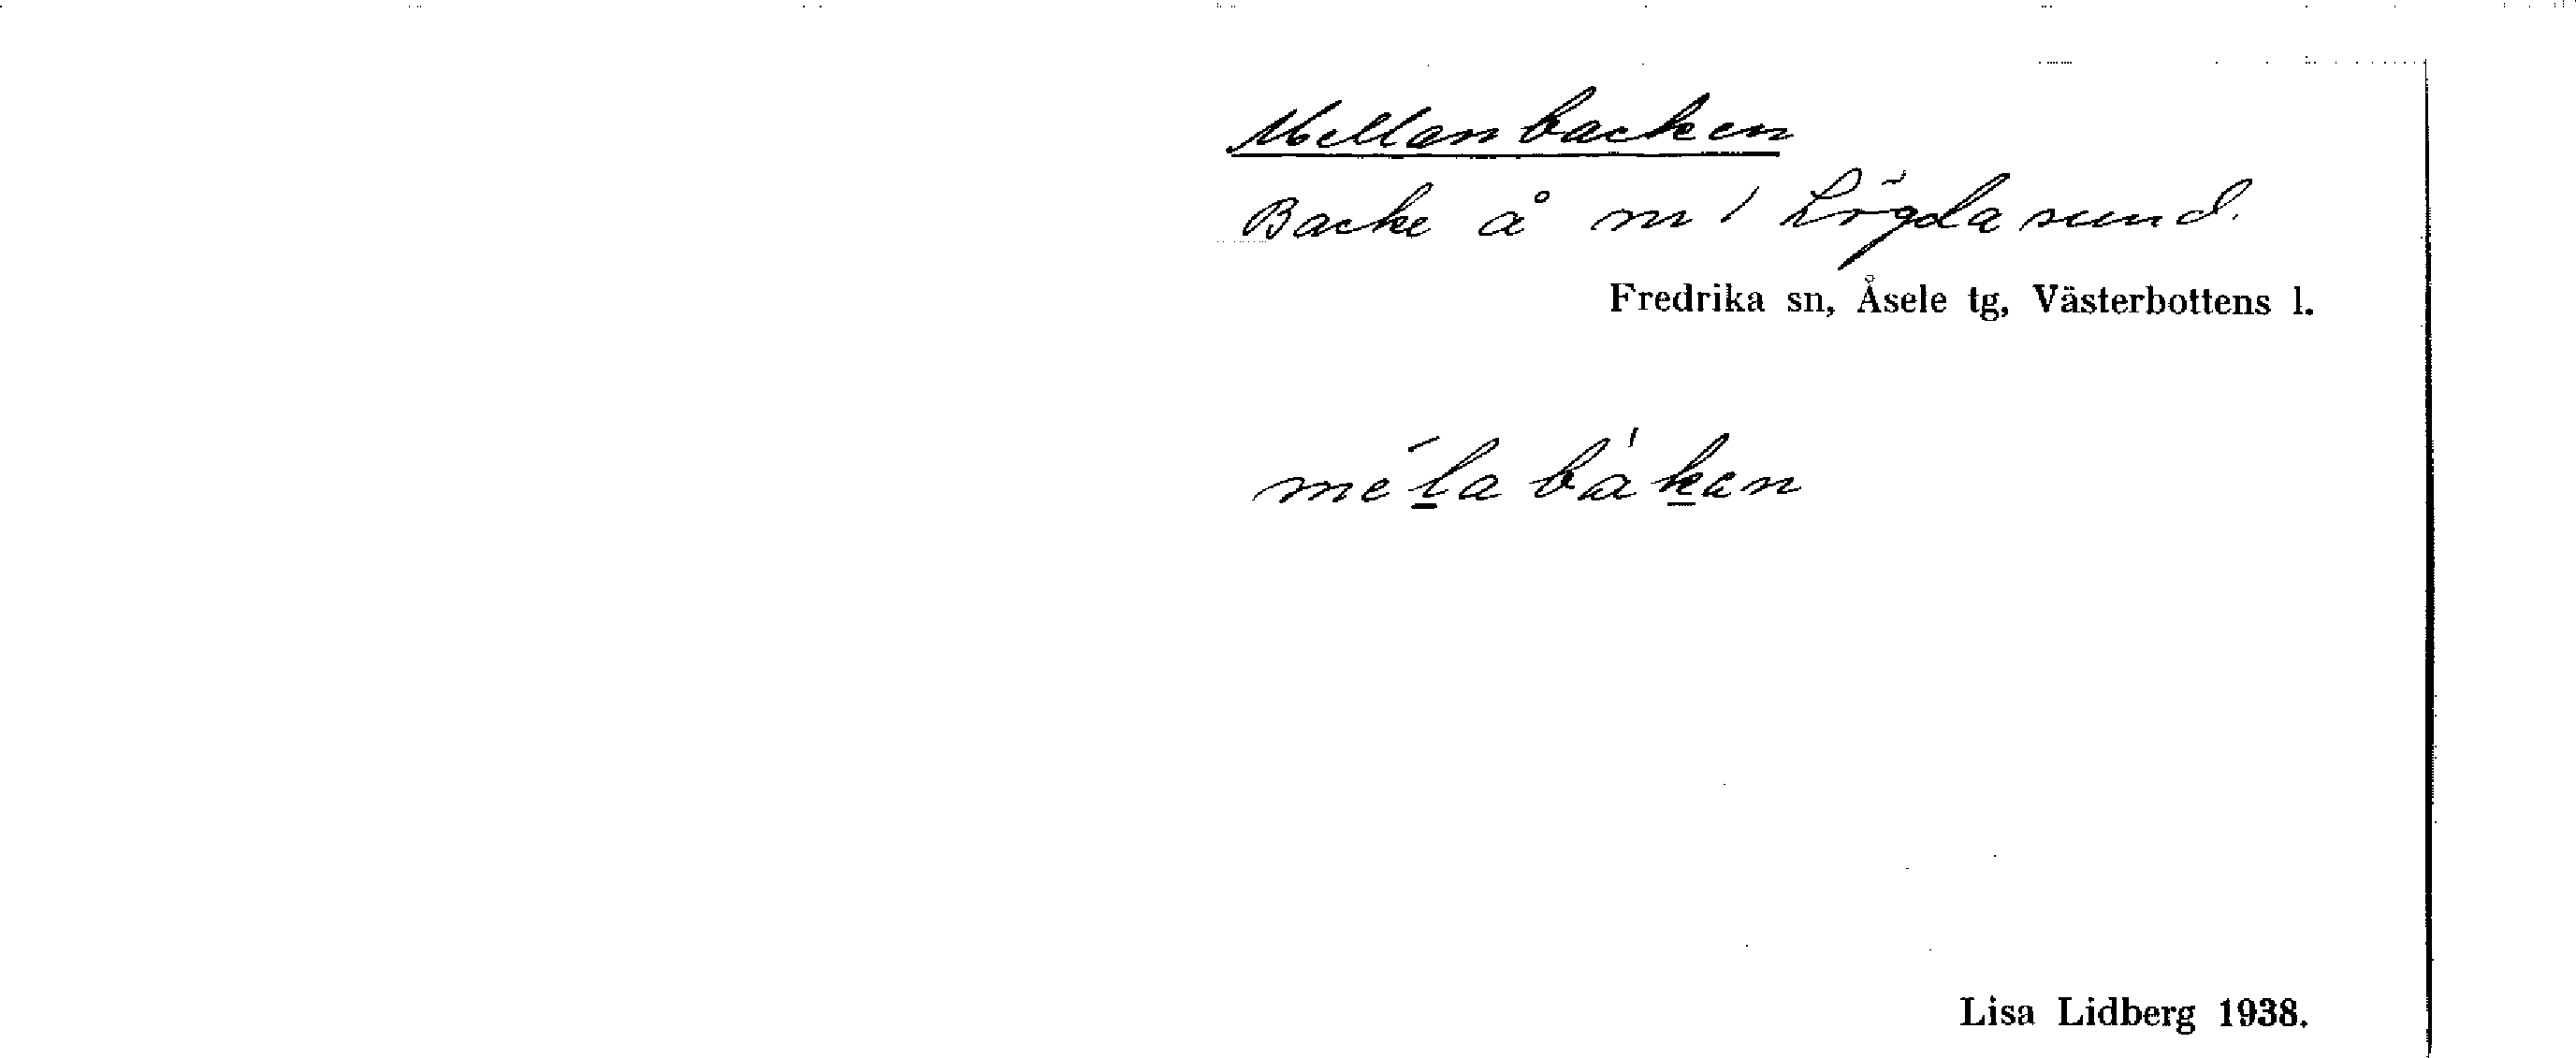 Mellanbacken
Backe å m / Lögdasund.
Fredrika sn, Åsele tg, Västerbottens l.
mél̲a bák̲an
Lisa Lidberg 1938.